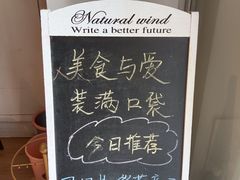 Natural wind
Write a better future
美食与爱
装满口袋
今日推荐